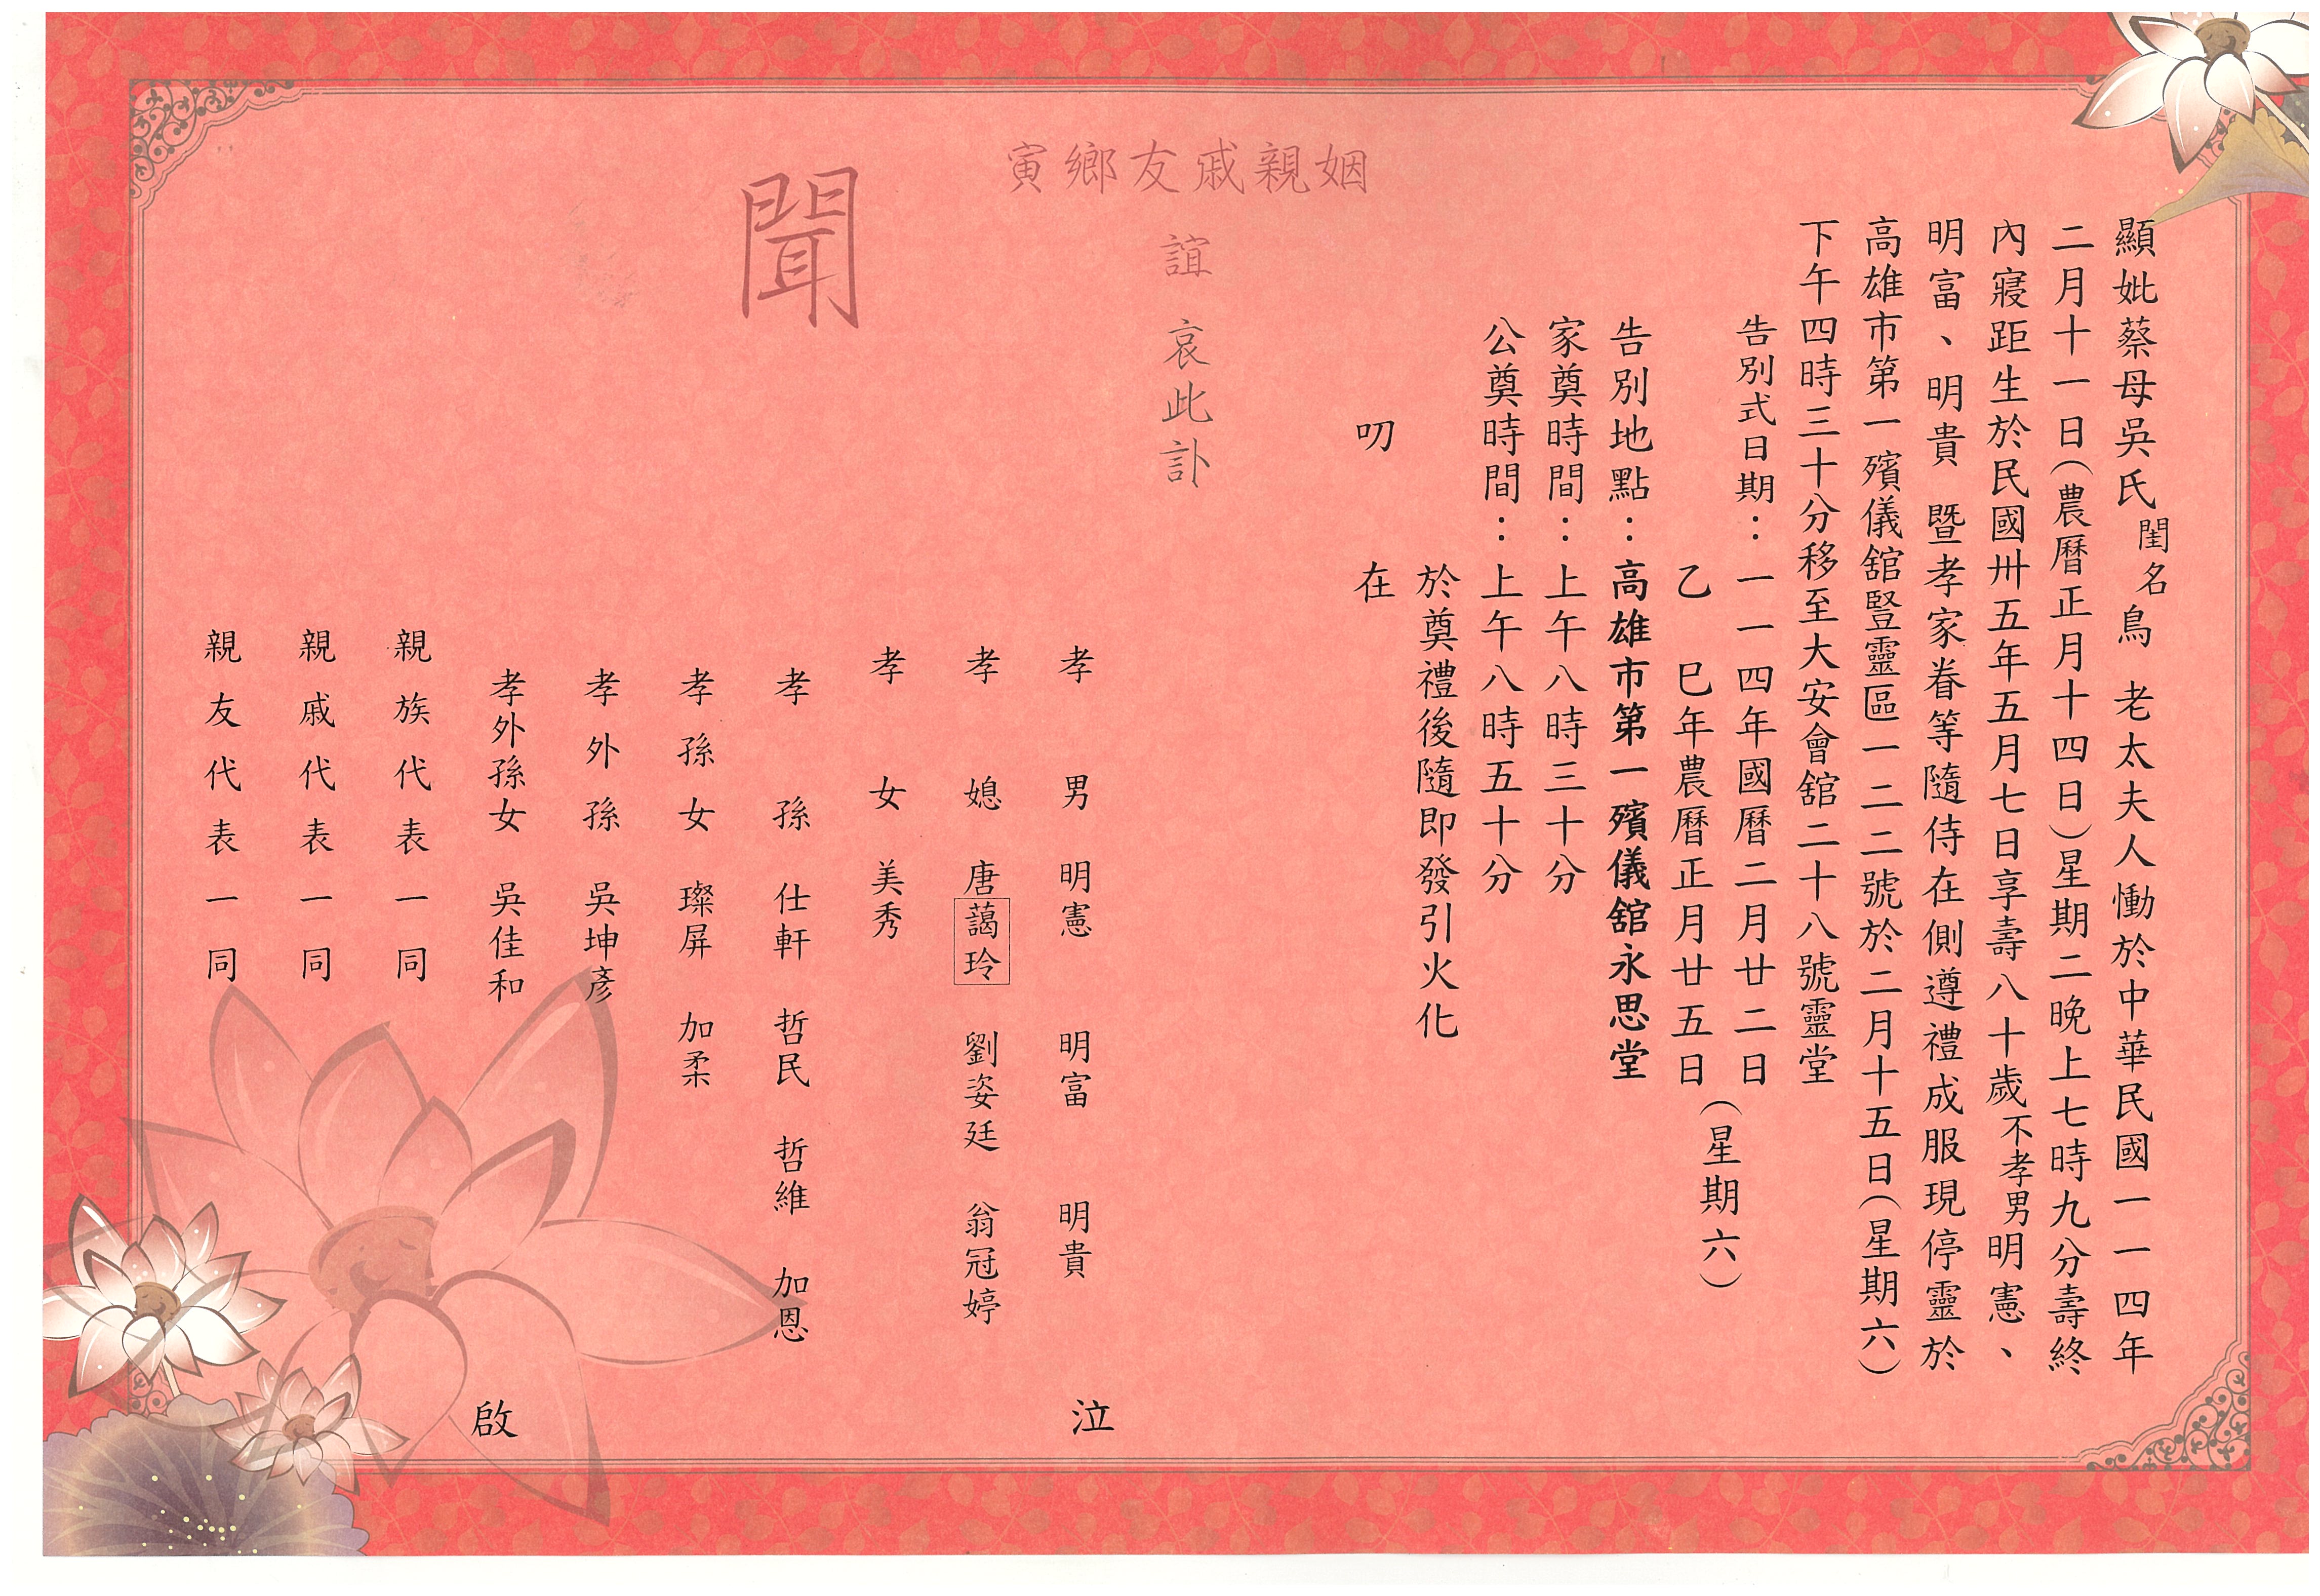 顯妣蔡母吳氏閨名鳥老太夫人慟於中華民國一一四年
二月十一日(農曆正月十四日)星期二晚上七時九分壽終
內寢距生於民國卅五年五月七日享壽八十歲不孝男明憲、
明富、明貴 暨孝家眷等隨侍在側遵禮成服現停靈於
高雄市第一殯儀舘豎靈區一二二號於二月十五日(星期六)
下午四時三十分移至大安會舘二十八號靈堂
告別式日期：一一四年國曆二月廿二日
乙巳年農曆正月廿五日
(星期六)
告別地點：高雄市第一殯儀舘永思堂
家奠時間：上午八時三十分
公奠時間：上午八時五十分
於奠禮後隨即發引火化
叨 在
姻親戚友鄉寅
誼 哀此訃
聞
孝男 明憲 明富 明貴
孝媳 唐藹玲 劉姿廷 翁冠婷
孝女 美秀
孝孫 仕軒 哲民 哲維 加恩
孝孫女 璨屏 加柔
孝外孫 吳坤彥
孝外孫女 吳佳和
親族代表一同
親戚代表一同
親友代表一同
泣
啟